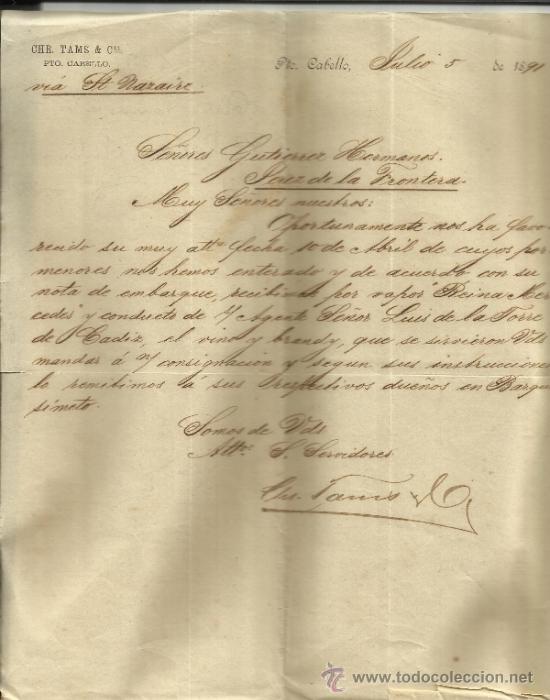 CHR. TAMS & Cia.
PTO. CABELLO.
Pto. Cabello, Julio 5 de 1891
viá St Nazaire.
Señores Gutierrez Hermanos.
Jerez de la Frontera.
Muy Señores nuestros:
Oportunamente nos ha favo-
recido su muy atta fecha 10 de Abril de cuyos por
menores nos hemos enterado y de acuerdo con su
nota de embarque, recibimos por vapor "Reina Mer
cedes" y conducto de s/ Agente Señor Luis de la Torre
de Cadiz, el vino y brandy, que se sirvieron Vds
mandar á n/ consignación y segun sus instrucciones
lo remitimos á sus respectivos dueños en Barqui
simeto.
Somos de Vds
Attos S. Servidores
Chr. Tams & Co
www.todocoleccion.net